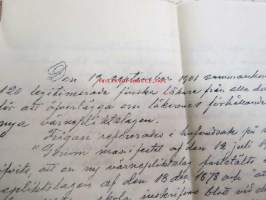 Den 19 september 1901 sammankom
120 legitimerade finska läkare från alla de
för att öfverlägga om läkarenes förhållande
nya värnepliktslagen.
Frågan refererades i hufvudsak på s
"Genom manifestet af den 12 juli 19
att en ny värnepliktslag fastställt
värnepliktslagen af den 18 dec. 1878 och "att
skola inskrifvas blott vid de